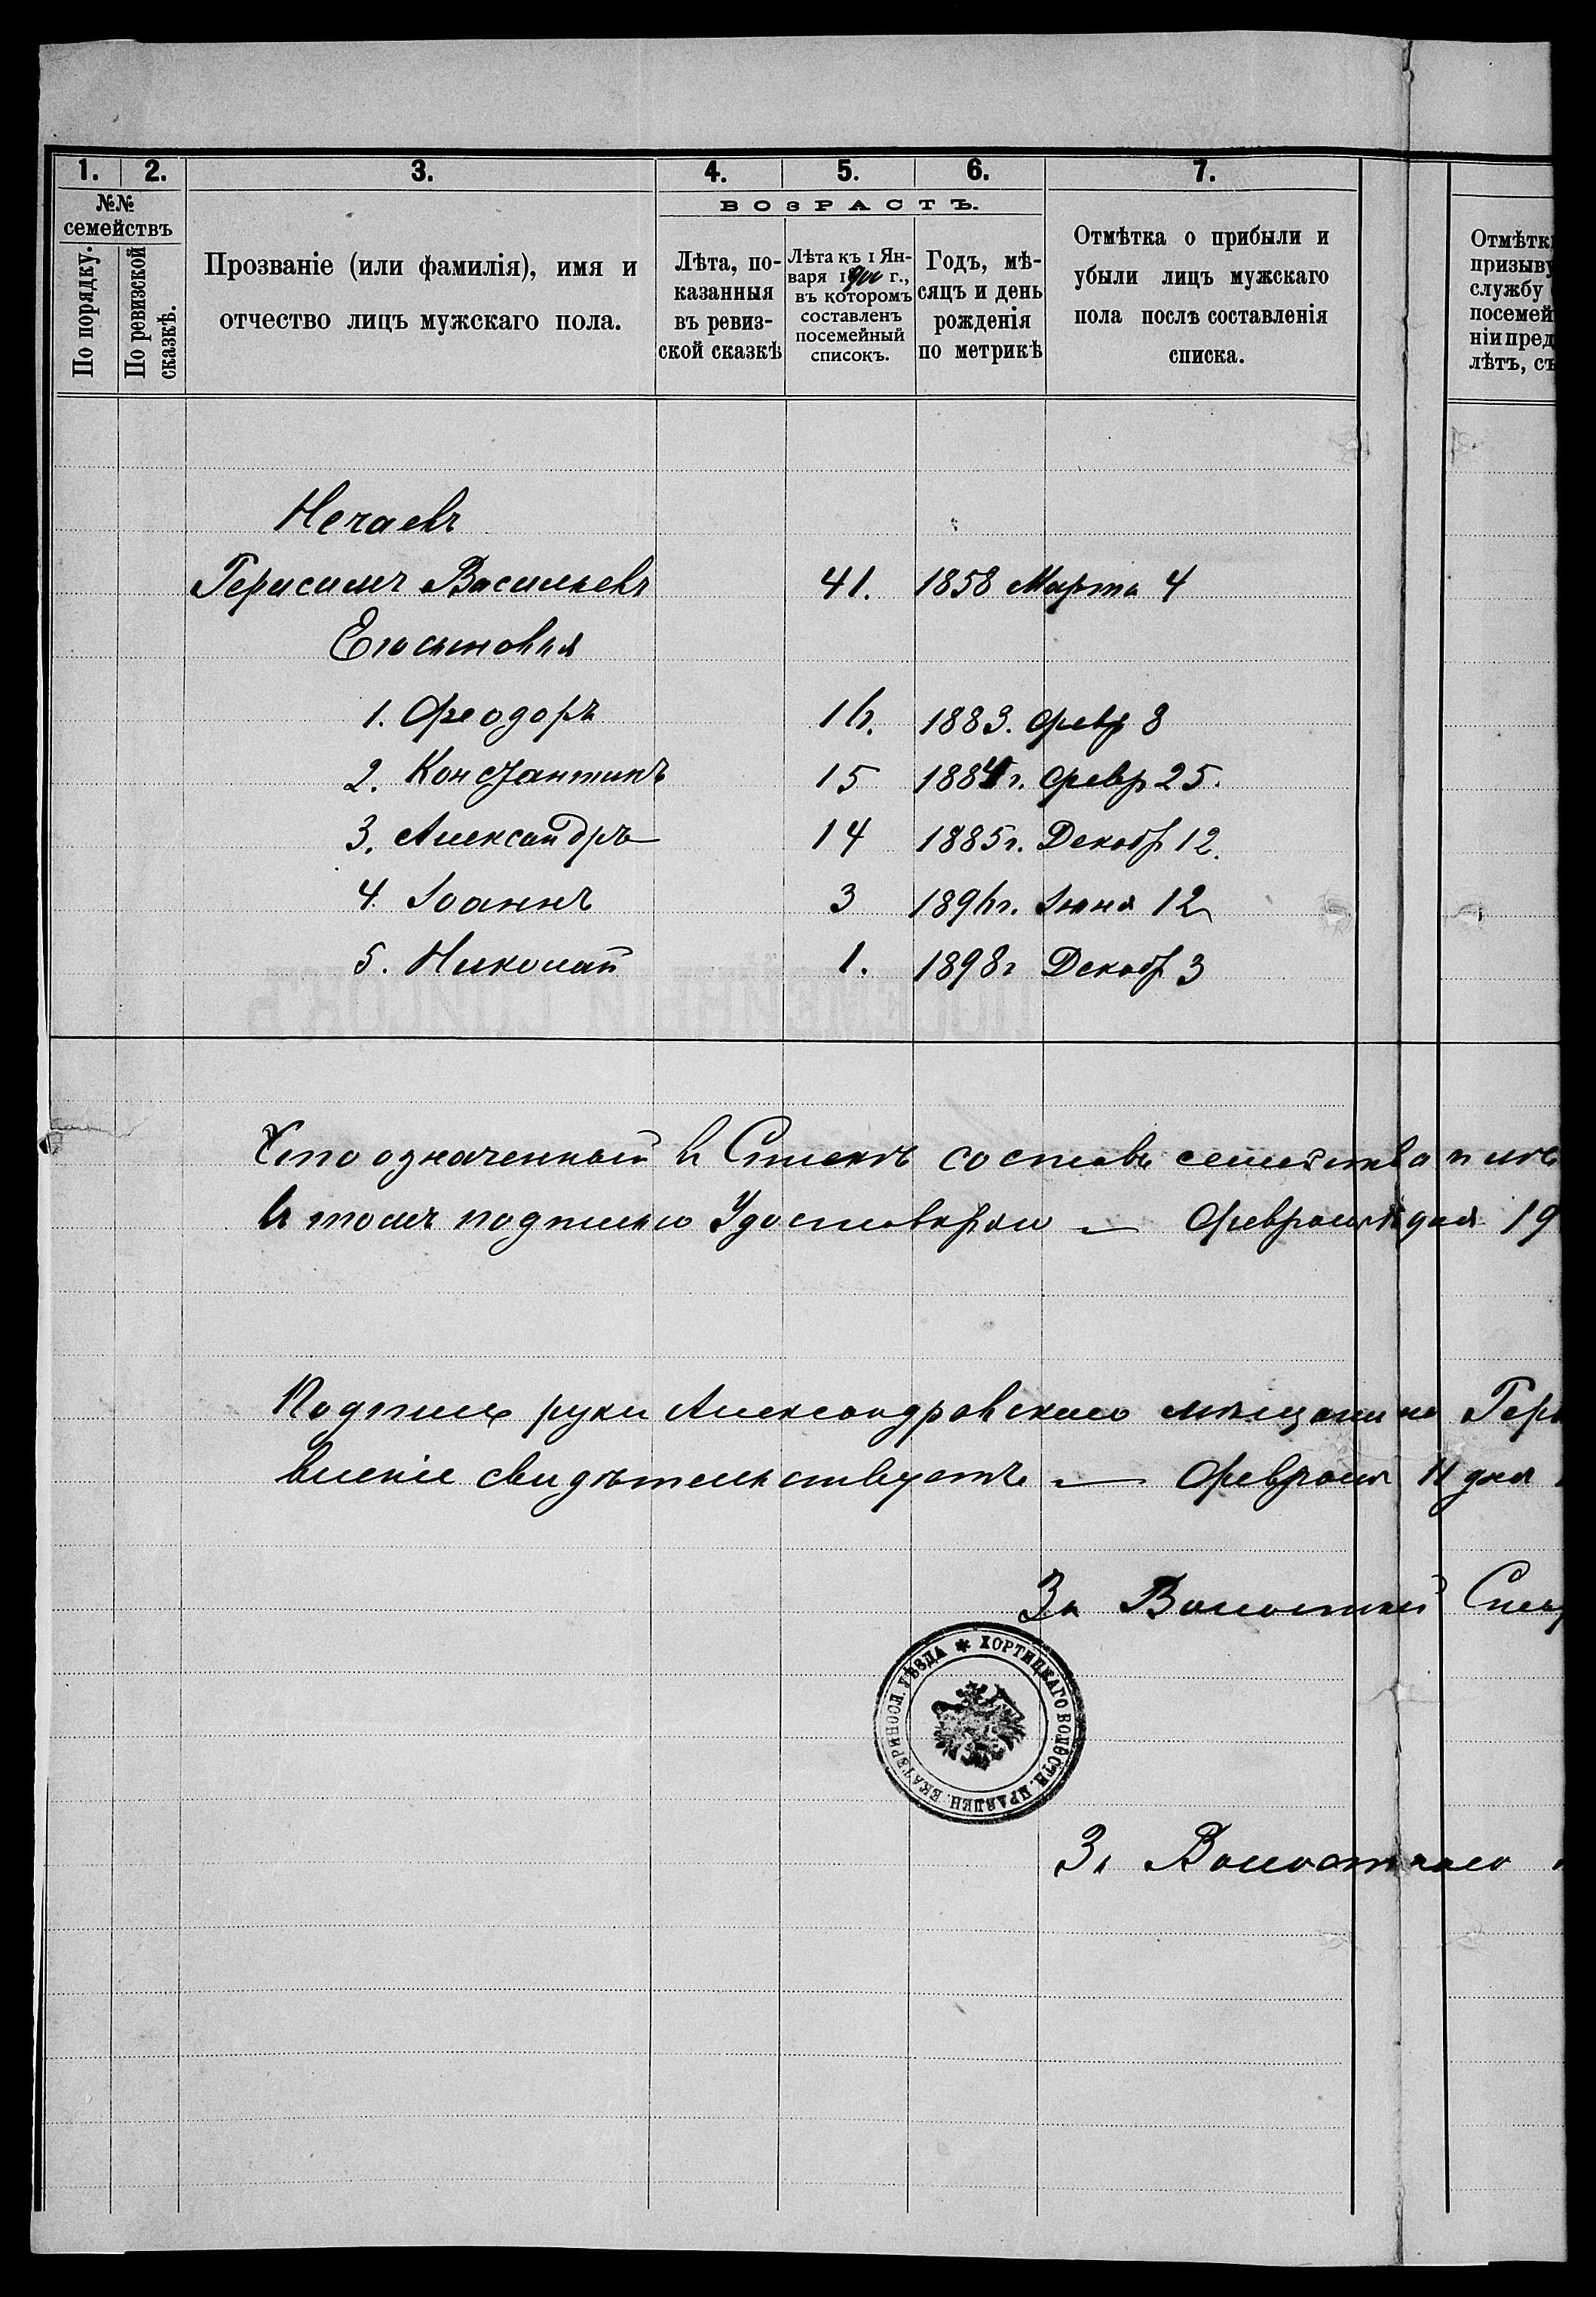 1. 2. 3. 4. 5. 6. 7.
№№ семействъ
По порядку.
По ревизской сказкѣ.
Прозваніе (или фамилія), имя и
отчество лицъ мужскаго пола.
ВОЗРАСТЪ.
Лѣта, по-
казанныя
въ ревиз-
ской сказкѣ
Лѣта къ 1 Ян-
варя 1900 г.,
въ которомъ
составленъ
посемейный
списокъ.
Годъ, мѣ-
сяцъ и день
рожденія
по метрикѣ
Отмѣтка о прибыли и
убыли лицъ мужскаго
пола послѣ составленія
списка.
Отмѣтк
призыву
службу
посемей
ніи пред
лѣтъ, съ
Нечаевъ
Герасимъ Васильевъ 41. 1858 Марта 4
Его сыновья
1. Феодоръ 16. 1883. Февр 8
2. Константинъ 15 1884 г. Февр 25.
3. Александръ 14 1885 г. Декабр 12.
4. Іоаннъ 3 1896 г. Іюня 12
5. Николай 1. 1898 г Декабр 3
Что означенный въ Списокъ составъ семейства
въ томъ подписью Удостоверяю — Февраля 11 дня 19
Подпись руки Александровскаго мѣщанина Гера
вленіе свидѣтельствуетъ — Февраля 11 дня
За Волостной
ХОРТИЦКАГО ВОЛОСТН. ПРАВЛЕН. ЕКАТЕРИНОСЛ. УѢЗДА
За Волостнаго